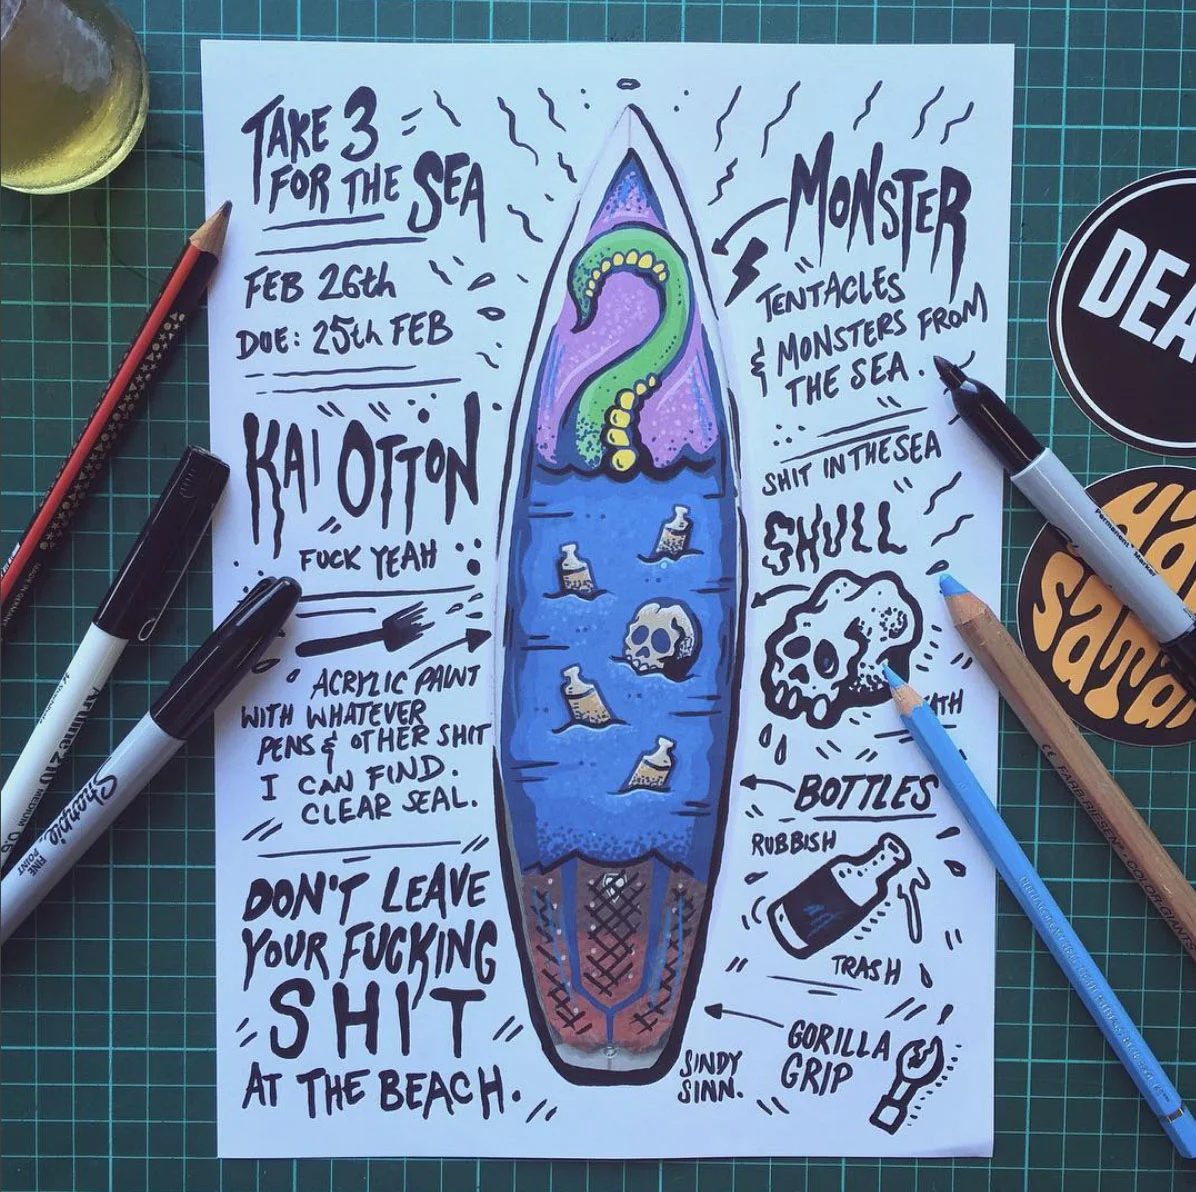 TAKE 3
FOR THE SEA
FEB 26th
DUE: 25th FEB
KAI OTTON
FUCK YEAH
ACRYLIC PAINT
WITH WHATEVER
PENS & OTHER SHIT
I CAN FIND.
CLEAR SEAL.
DON'T LEAVE
YOUR FUCKING
SHIT
AT THE BEACH.
MONSTER
TENTACLES
& MONSTERS FROM
THE SEA.
SHIT IN THE SEA
SKULL
BOTTLES
RUBBISH
TRASH
GORILLA
GRIP
SINDY
SINN.
Sharpie
FINE
POINT
Permanent Marker
DEA